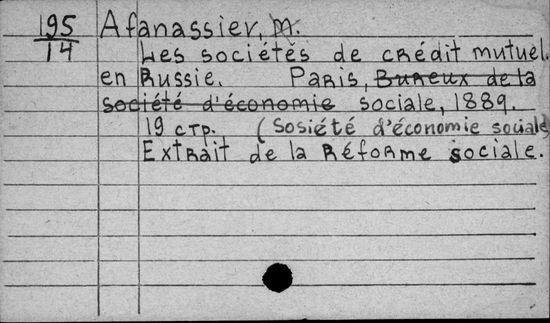 195 Afanassier, M.
14 Les sociétés de crédit mutuel.
en Russie. Paris, Bureux de la
société d'économie sociale, 1889.
19 стр. (Sosiété d'économie sociale)
Extrait de la Réforme sociale.